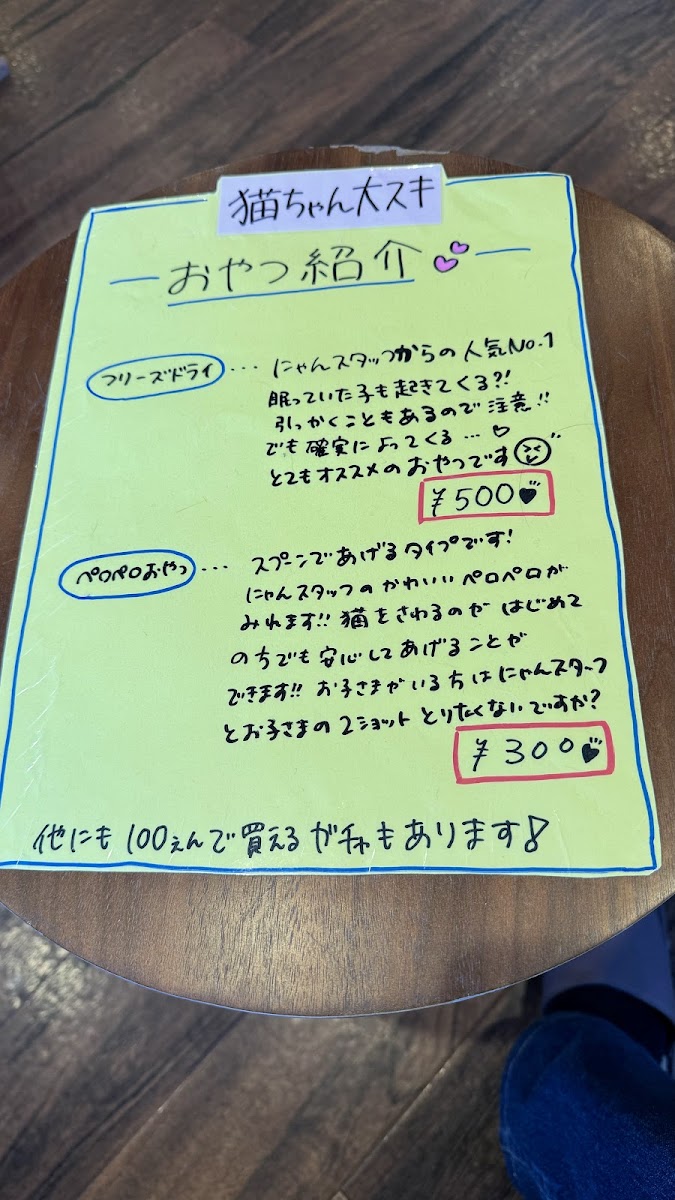 猫ちゃん大スキ
おやつ紹介
フリーズドライ … にゃんスタッフからの人気No.1
眠っていた子も起きてくる?!
引っかくこともあるので注意!!
でも確実によってくる…♡
とてもオススメのおやつです
¥500
ペロペロおやつ … スプーンであげるタイプです!
にゃんスタッフのかわいいペロペロが
みれます!! 猫をさわるのがはじめて
の方でも安心してあげることが
できます!! お子さまがいる方はにゃんスタッフ
とお子さまの2ショットとりたくないですか?
¥300
他にも100えんで買えるガチャもあります♪